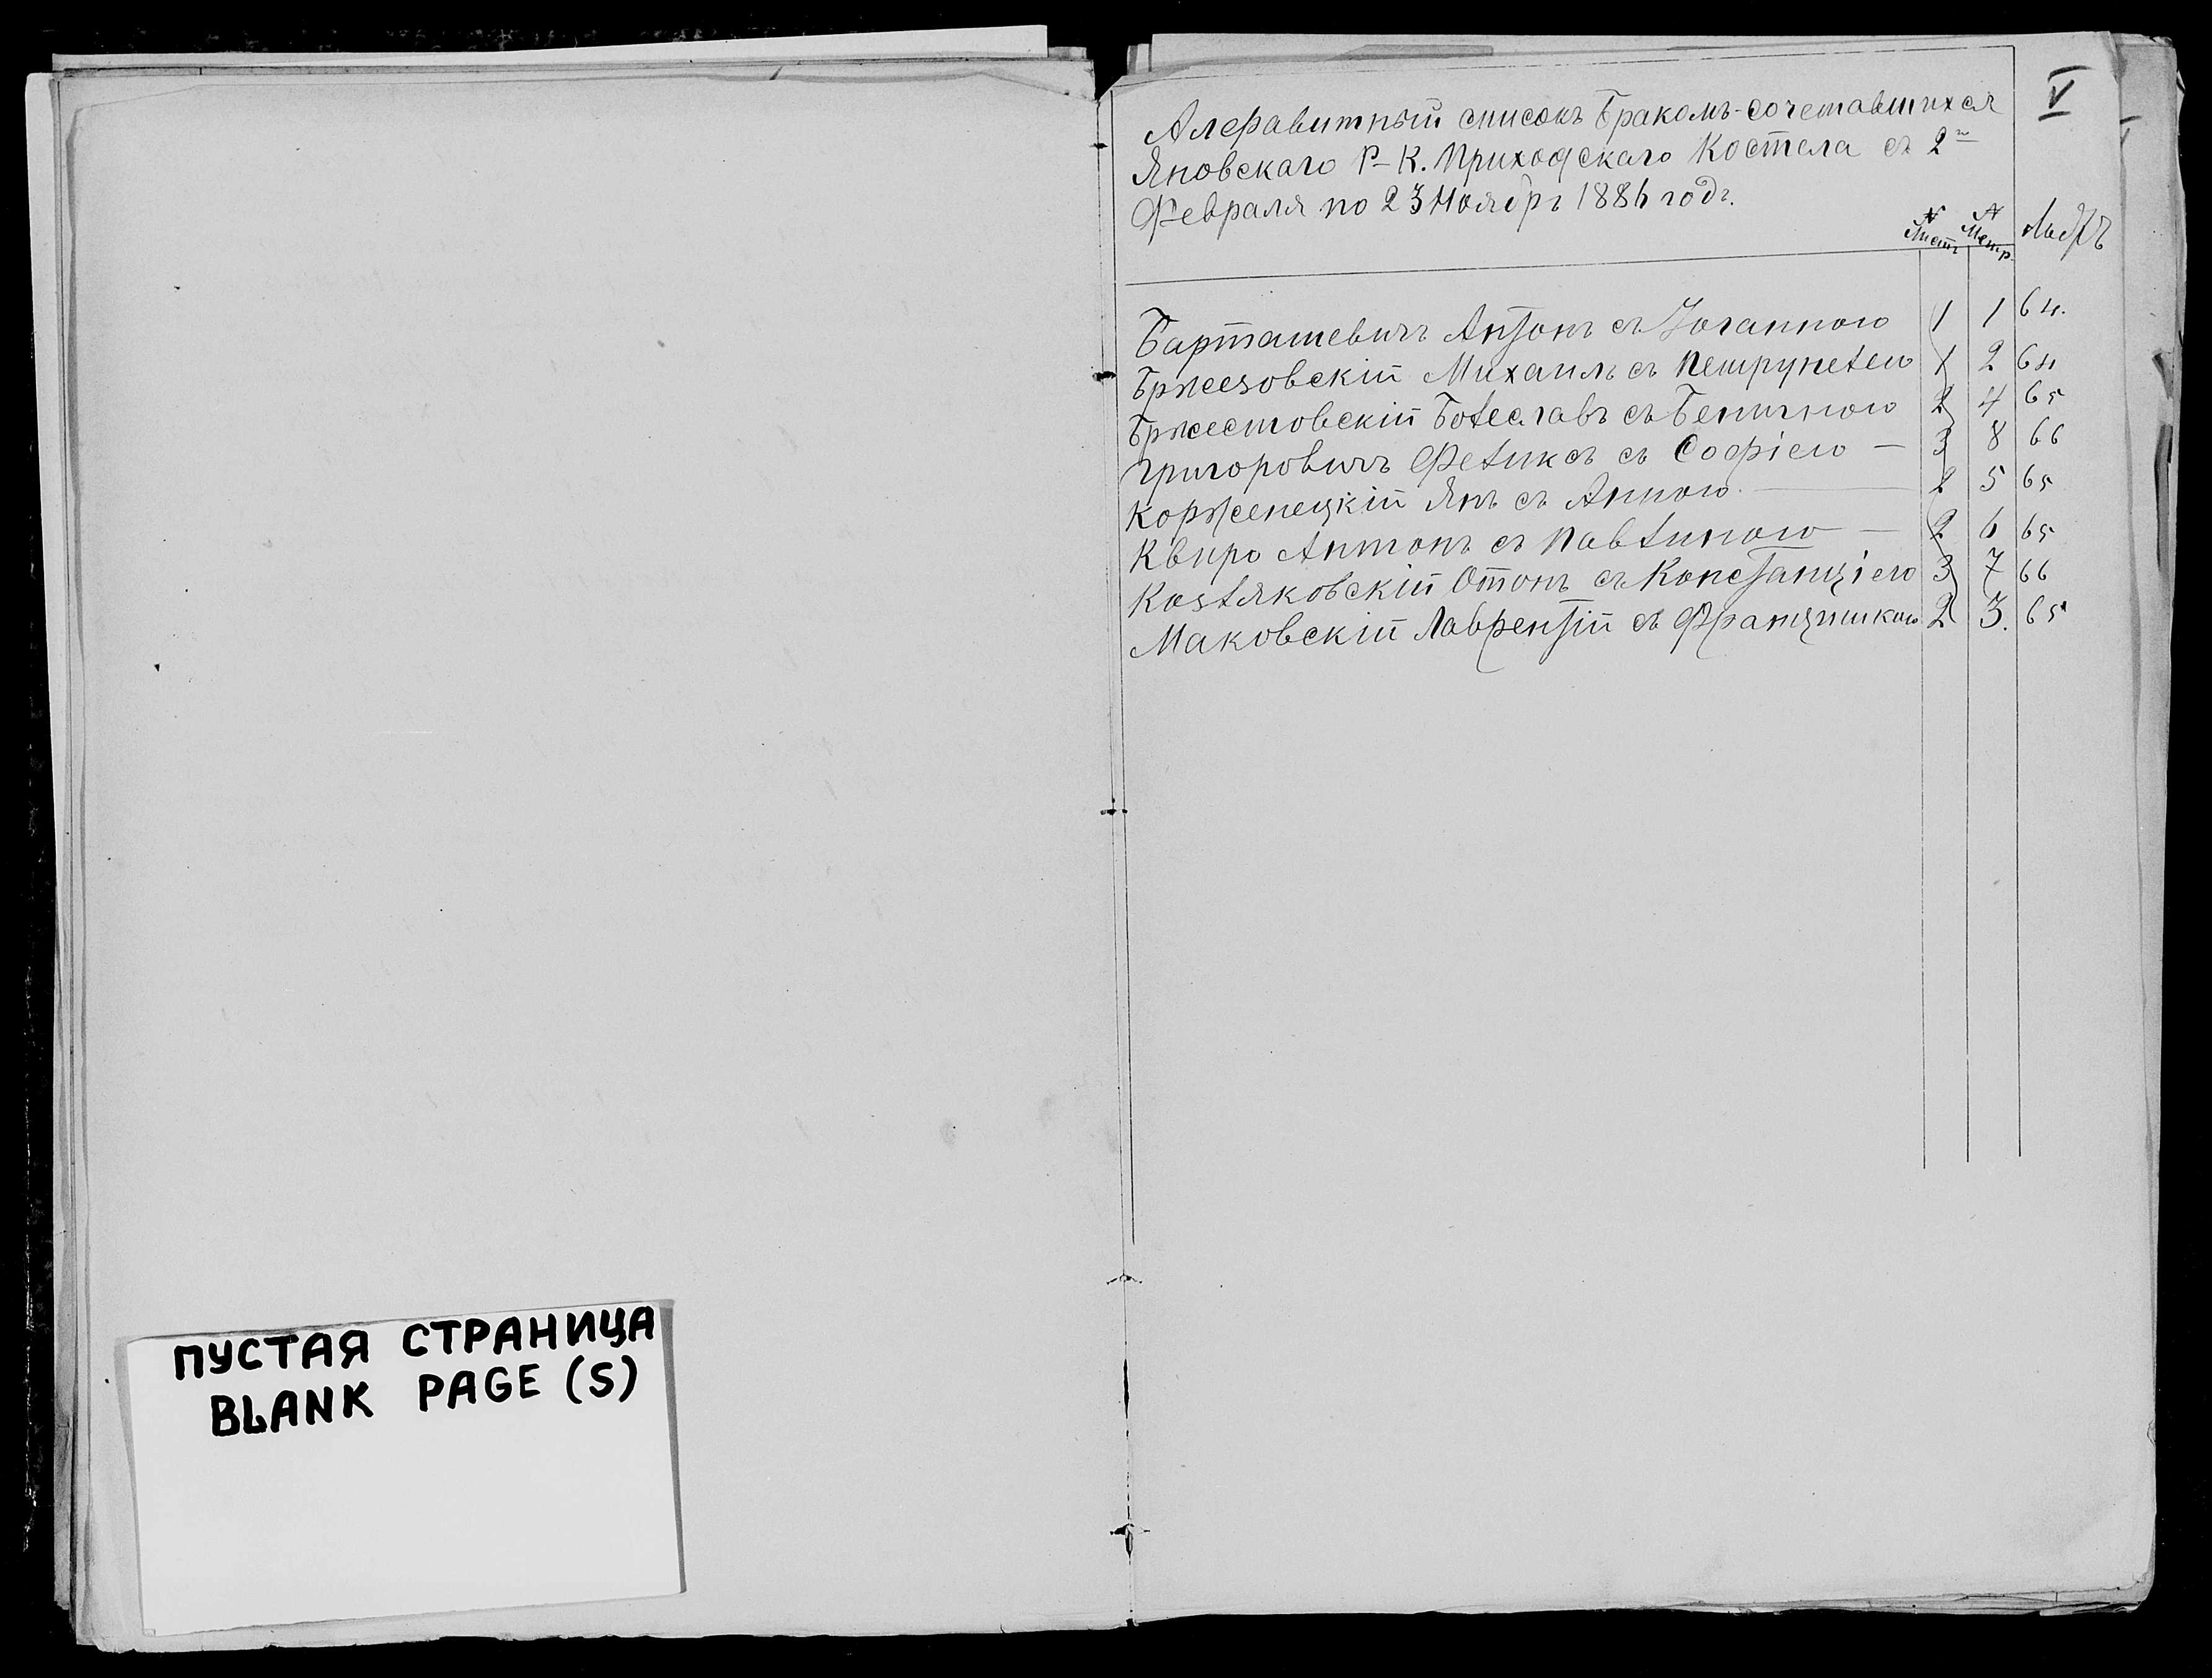 V
Алфавитный списокъ Бракомъ-сочетавшихся
Яновскаго Р-К. Приходскаго Костела съ 2го
Февраля по 23 Ноябрь 1886 годъ.
N Листъ N Метр.
Барташевичъ Антонъ съ Іоганною 1 1 64.
Бржезовскій Михаилъ съ Петрунелею 1 2 64
Бржестовскій Болеславъ съ Бенигною 2 4 65
Григоровичъ Феликсъ съ Софіею — 3 8 66
Корженецкій Янъ съ Анною — 2 5 65
Квиро Антонъ съ Павлиною — 2 6 65
Козляковскій Отонъ съ Констанціею 3 7 66
Маковскій Лаврентій съ Францишкою 2 3. 65
ПУСТАЯ СТРАНИЦА
BLANK PAGE (S)